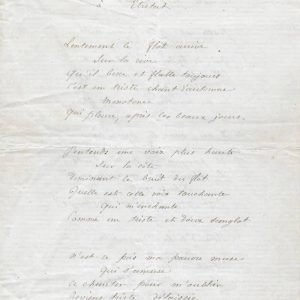 à Etretat
Lentement le flot arrive
Sur la rive
Qu'il berce et flatte toujours
C'est un triste chant d'automne
Monotone
Qui pleure, après les beaux jours.
J'entends une voix plus haute
Sur la côte
Dominant le bruit du flot
Quelle est cette voix touchante
Qui m'enchante
Comme un triste et doux sanglot
N'est ce pas ma pauvre muse
Qui s'amuse
à chanter pour m'oublier
triste